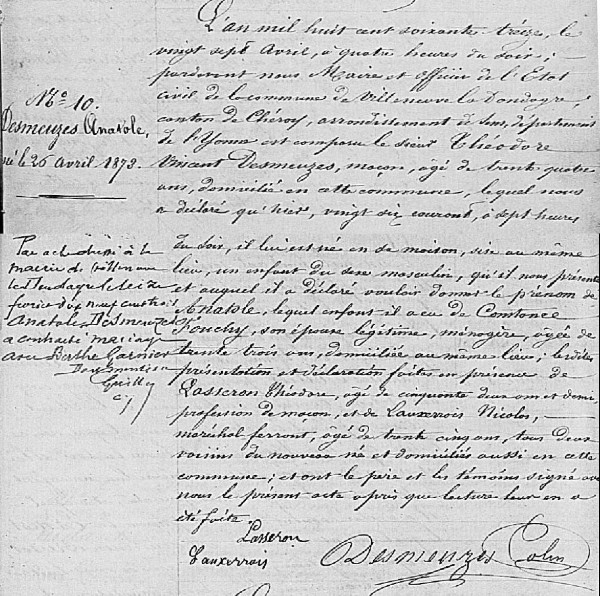 L'an mil huit cent soixante treize, le
vingt sept Avril, à quatre heures du soir ;
pardevant nous Maire et officier de l'Etat
civil de la commune de Villeneuve la Dondagre,
canton de Chéroy, arrondissement de Sens, département
de l'Yonne est comparu le sieur Théodore
Vincent Desmeuzes, maçon, âgé de trente quatre
ans, domicilié en cette commune, lequel nous
a déclaré qu'hier, vingt six courant, à sept heures
du soir, il lui est né en sa maison, sise au même
lieu, un enfant du sexe masculin, qu'il nous présente
et auquel il a déclaré vouloir donner le prénom de
Anatole, lequel enfant il a eu de Constance
son épouse légitime, ménagère, âgée de
trente trois ans, domiciliée au même lieu ; les dites
présentation et déclaration faites en présence de
Lasseron Théodore, âgé de cinquante deux ans et demi
profession de maçon, et de Vauxerrois Nicolas,
maréchal ferrant, âgé de trente cinq ans, tous deux
voisins du nouveau né et domiciliés aussi en cette
commune ; et ont le père et les témoins signé avec
nous le présent acte après que lecture leur en a
été faite.
Lasseron
Vauxerrois
Desmeuzes Colin
No 10.
Desmeuzes Anatole,
né le 26 avril 1873.
Par acte dressé à la
mairie de Villeneuve
la Dondagre le seize
février dix neuf cent
Anatole Desmeuzes
a contracté mariage
avec Berthe Garnier
Dont mention